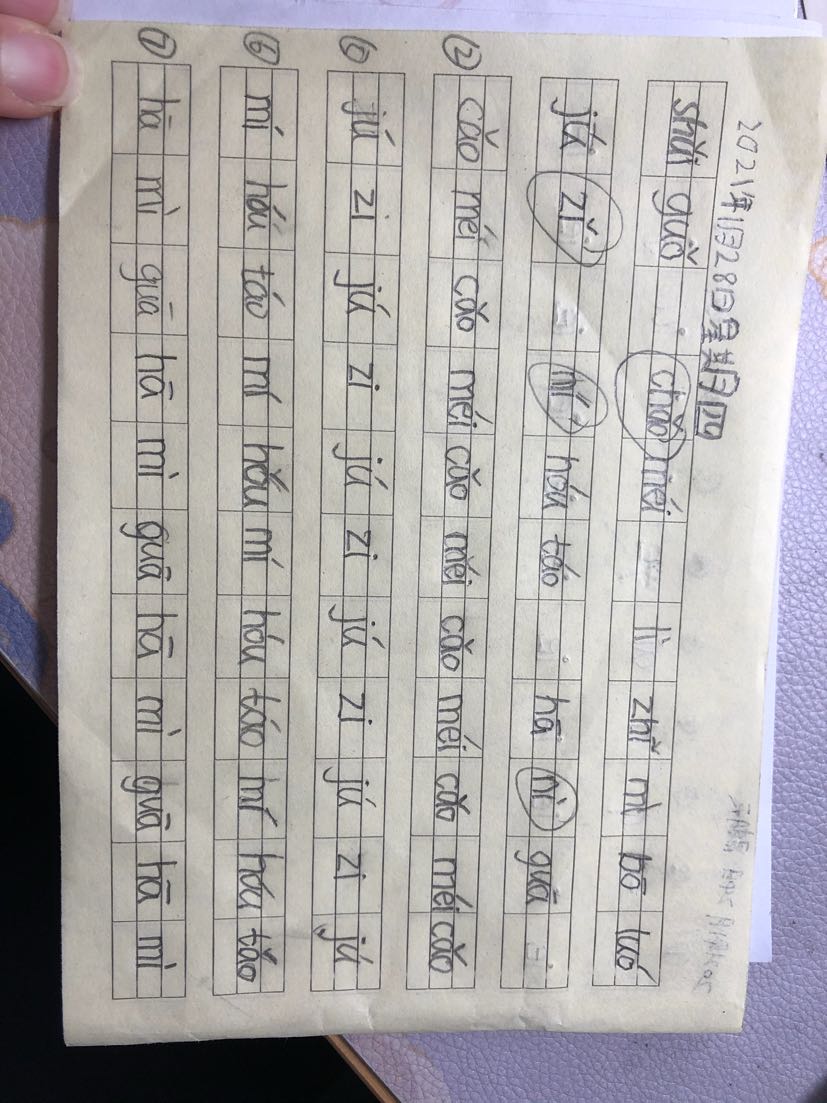 2021年1月28日星期四
shuǐ guǒ chǎo méi lì zhī mì bō luó
jú zǐ ní hóu táo hā nì guā
② cǎo méi cǎo méi cǎo méi cǎo méi cǎo méi cǎo
⑥ jú zi jú zi jú zi jú zi jú zi jú
⑥ mí hóu táo mí hǒu mí hóu táo mí hóu tǎo
⑦ hā mì guā hā mì guā hā mì guā hā mì